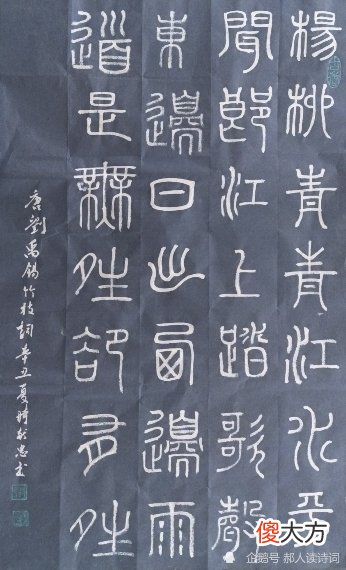 楊柳青青江水平
聞郎江上踏歌聲
東邊日出西邊雨
道是無晴卻有晴
唐劉禹錫竹枝詞辛丑夏
傻大方
企鹅号 郝人读诗词